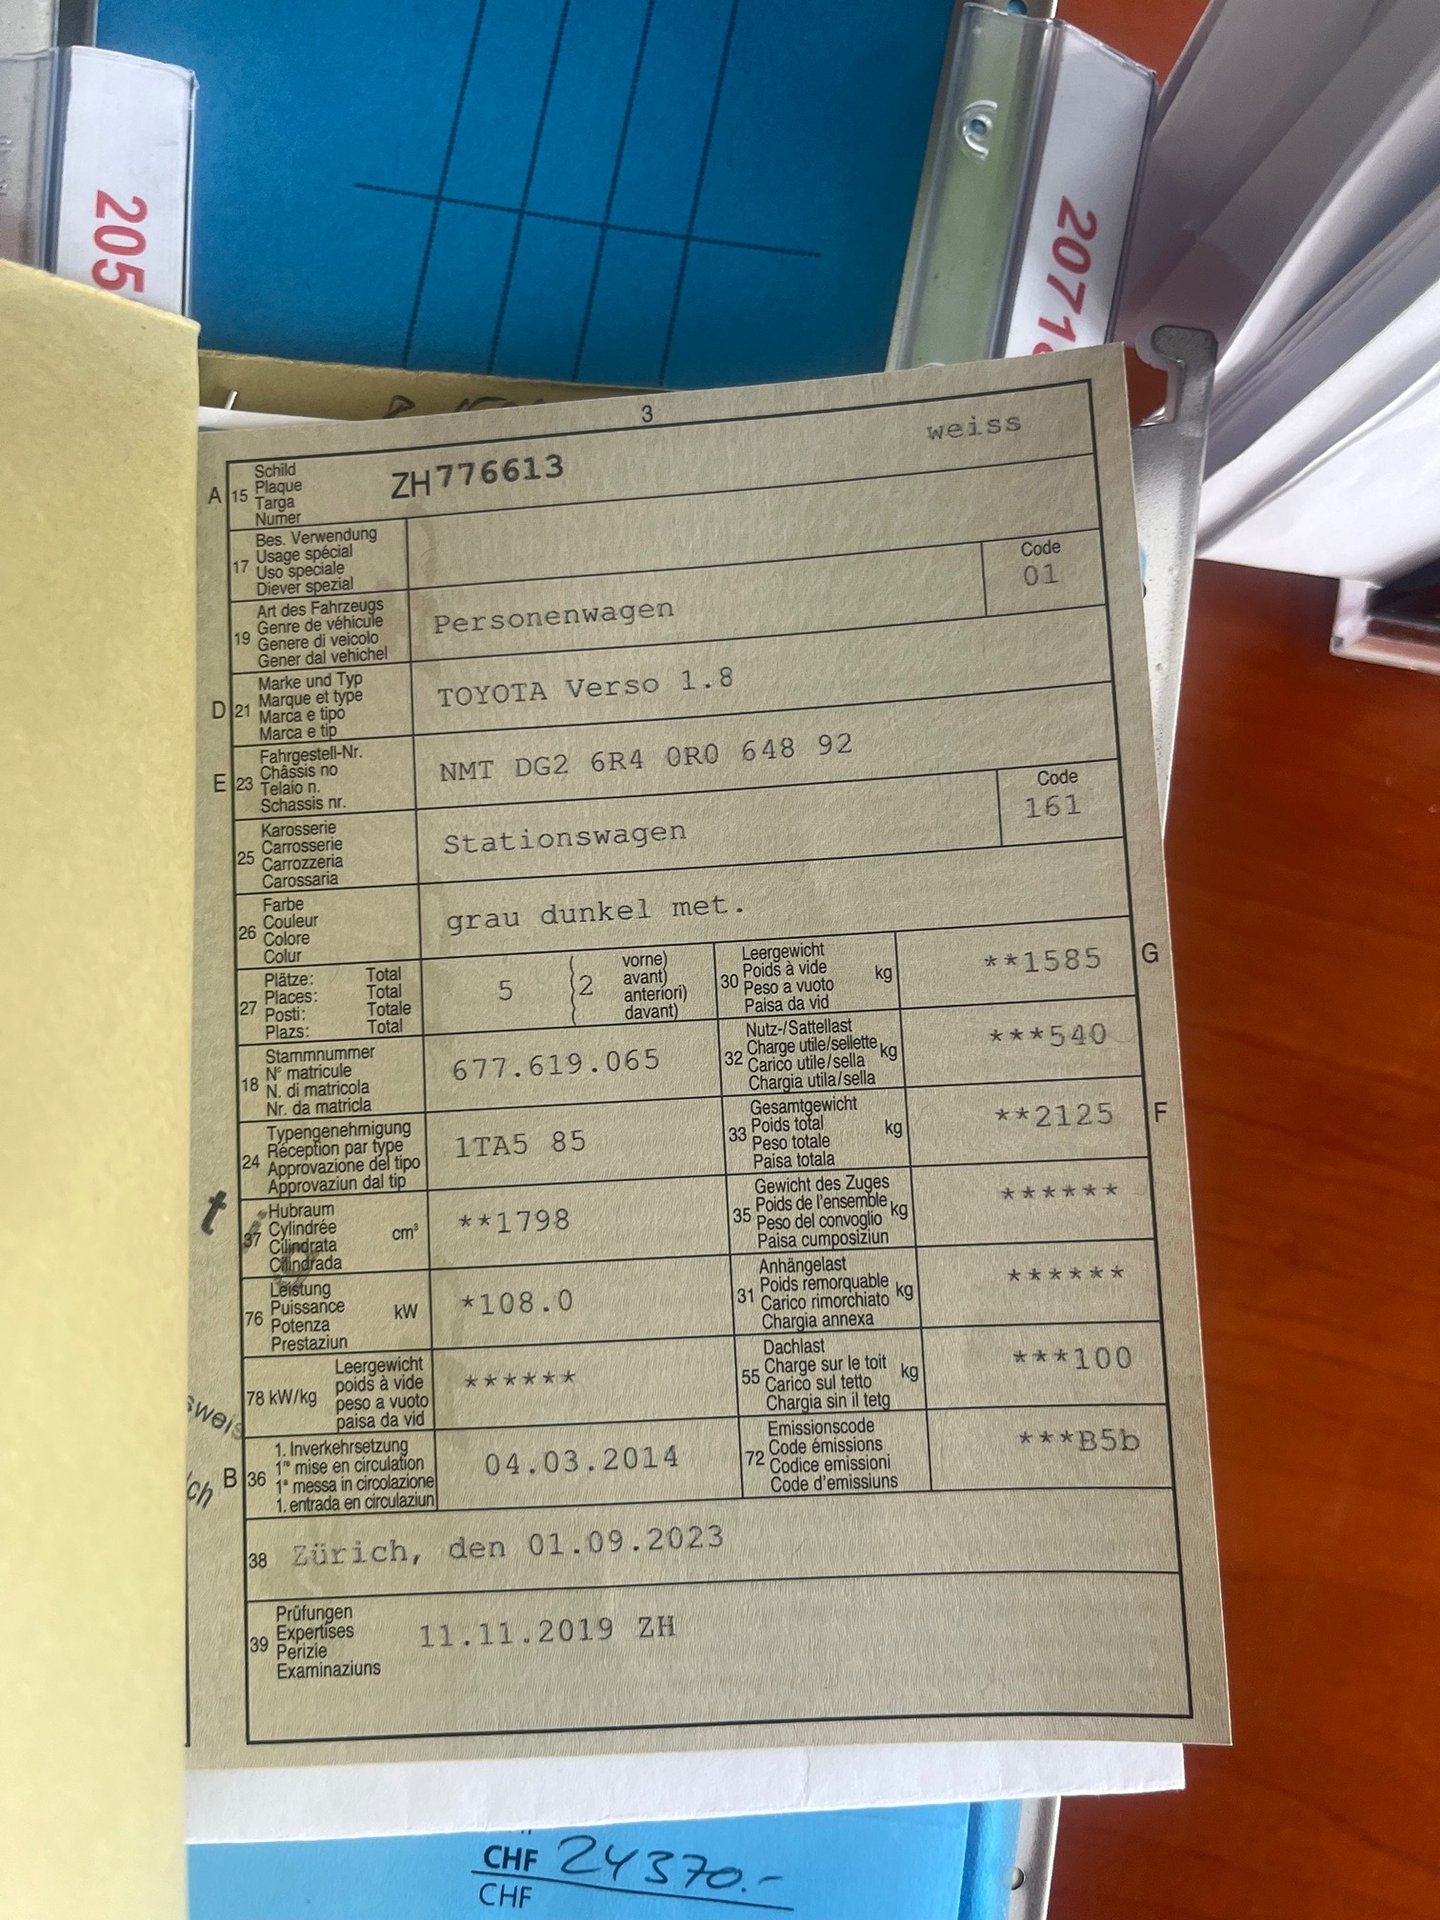 205
2071
3
A 15 Schild
Plaque
Targa
Numer
ZH 776613
weiss
17 Bes. Verwendung
Usage spécial
Uso speciale
Diever spezial
19 Art des Fahrzeugs
Genre de véhicule
Genere di veicolo
Gener dal vehichel
Personenwagen
Code
01
D 21 Marke und Typ
Marque et type
Marca e tipo
Marca e tip
TOYOTA Verso 1.8
E 23 Fahrgestell-Nr.
Châssis no
Telaio n.
Schassis nr.
NMT DG2 6R4 0R0 648 92
25 Karosserie
Carrosserie
Carrozzeria
Carossaria
Stationswagen
Code
161
26 Farbe
Couleur
Colore
Colur
grau dunkel met.
27 Plätze: Total
Places: Total
Posti: Totale
Plazs: Total
5 (2 vorne)
avant)
anteriori)
davant)
30 Leergewicht
Poids à vide
Peso a vuoto
Paisa da vid
kg
**1585 G
18 Stammnummer
N° matricule
N. di matricola
Nr. da matricla
677.619.065
32 Nutz-/Sattellast
Charge utile/sellette
Carico utile/sella
Chargia utila/sella
kg
***540
24 Typengenehmigung
Réception par type
Approvazione del tipo
Approvaziun dal tip
1TA5 85
33 Gesamtgewicht
Poids total
Peso totale
Paisa totala
kg
**2125 F
t
37 Hubraum
Cylindrée
Cilindrata
Cilindrada
cm³
**1798
35 Gewicht des Zuges
Poids de l'ensemble
Peso del convoglio
Paisa cumposiziun
kg
******
76 Leistung
Puissance
Potenza
Prestaziun
kW
*108.0
31 Anhängelast
Poids remorquable
Carico rimorchiato
Chargia annexa
kg
******
78 kW/kg Leergewicht
poids à vide
peso a vuoto
paisa da vid
******
55 Dachlast
Charge sur le toit
Carico sul tetto
Chargia sin il tetg
kg
***100
sweis
ch
B 36 1. Inverkehrsetzung
1re mise en circulation
1a messa in circolazione
1. entrada en circulaziun
04.03.2014
72 Emissionscode
Code émissions
Codice emissioni
Code d'emissiuns
***B5b
38 Zürich, den 01.09.2023
39 Prüfungen
Expertises
Perizie
Examinaziuns
11.11.2019 ZH
CHF 24370.-
CHF